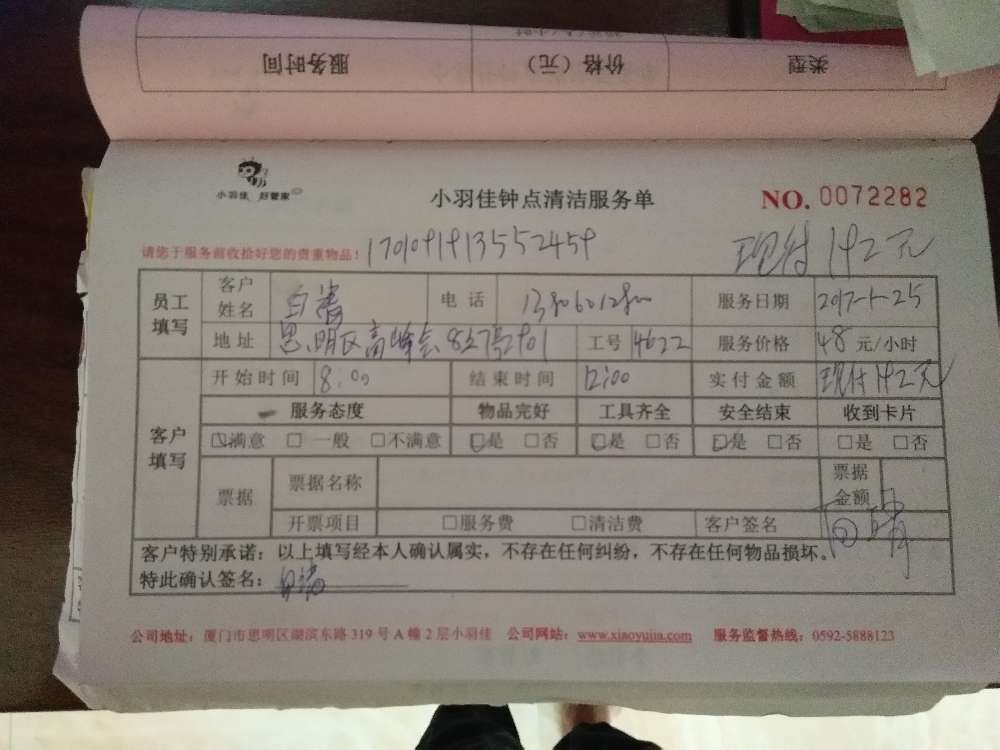 服务时间 价格（元） 类型
小羽佳 好管家
小羽佳钟点清洁服务单 NO. 0072282
请您于服务前收拾好您的贵重物品！ 现付192元
员工填写 客户姓名 电话 服务日期 2017-1-25
地址 思明区 工号 4622 服务价格 48 元/小时
开始时间 8:00 结束时间 12:00 实付金额 现付192元
客户填写 服务态度 物品完好 工具齐全 安全结束 收到卡片
☑满意 □ 一般 □不满意 ☑是 □否 ☑是 □否 ☑是 □否 □是 □否
票据 票据名称 票据金额
开票项目 □服务费 □清洁费 客户签名
客户特别承诺：以上填写经本人确认属实，不存在任何纠纷，不存在任何物品损坏。
特此确认签名：
公司地址：厦门市思明区湖滨东路 319 号 A 幢 2 层小羽佳 公司网站：www.xiaoyujia.com 服务监督热线：0592-5888123